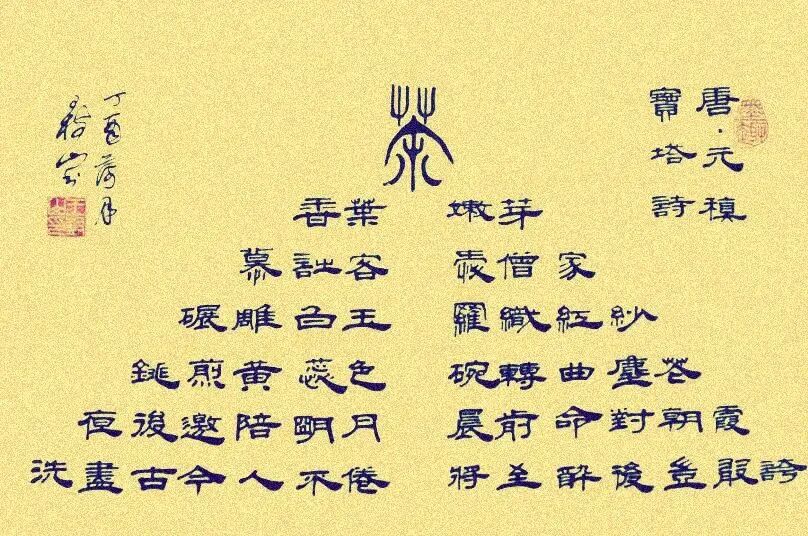 唐·元稹
寶塔詩
茶
香葉 嫩芽
慕詩客 愛僧家
碾雕白玉 羅織紅紗
銚煎黃蕊色 碗轉曲塵花
夜後邀陪明月 晨前命對朝霞
洗盡古今人不倦 將至醉後豈敢誇
丁酉荷月